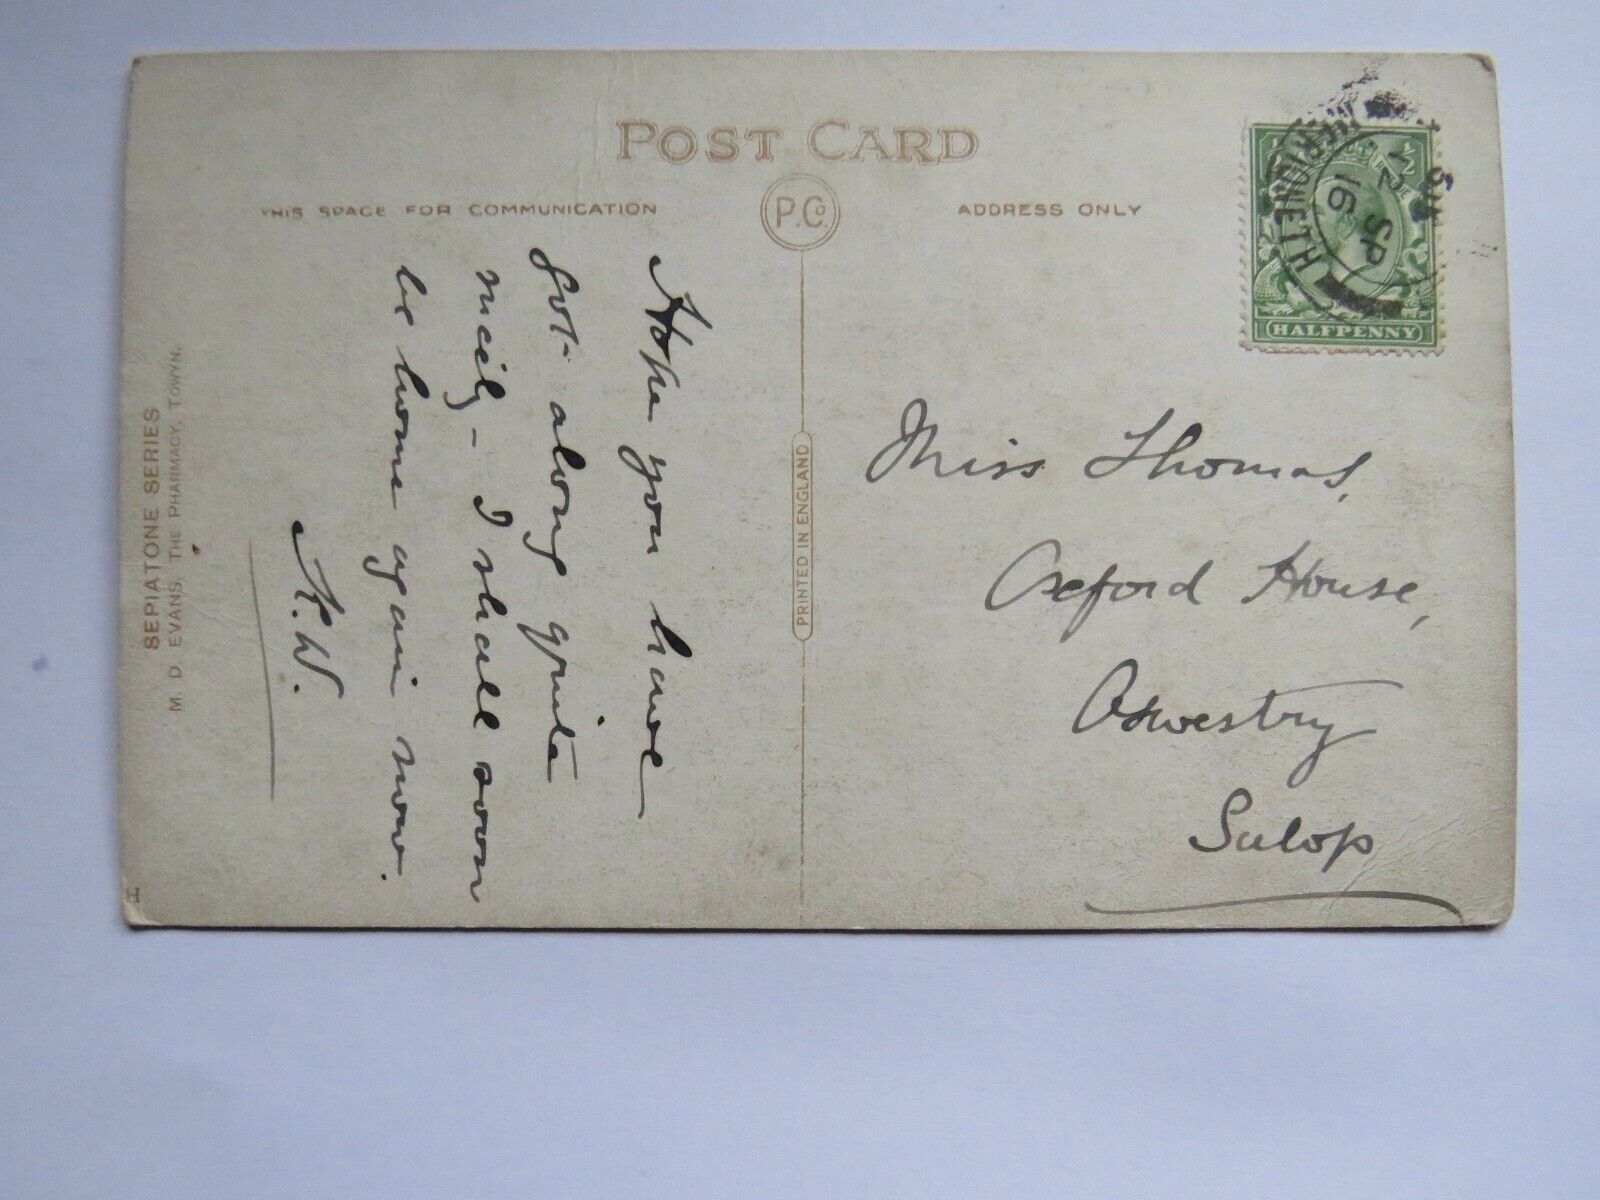 POST CARD
THIS SPACE FOR COMMUNICATION
P. Co.
ADDRESS ONLY
Hope you have
got along quite
nicely - I shall soon
be home again now.
K.W.
Miss Thomas,
Oxford House,
Oswestry
Salop
HALFPENNY
SP
16
PRINTED IN ENGLAND
SEPIATONE SERIES
M. D. EVANS, THE PHARMACY, TOWYN.
H